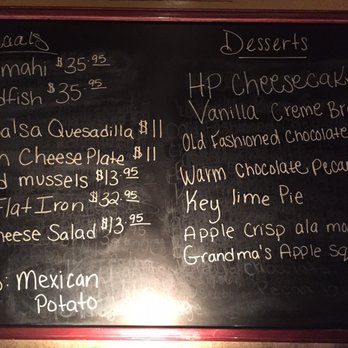 cials
mahi $35.95
dfish $35.95
alsa Quesadilla $11
n Cheese Plate $11
d mussels $13.95
Flat Iron $32.95
heese Salad $13.95
: Mexican
Potato
Desserts
HP Cheesecake
Vanilla Creme Br
Old Fashioned Chocolate
Warm Chocolate Pecan
Key lime Pie
Apple Crisp ala mo
Grandma's Apple Sq